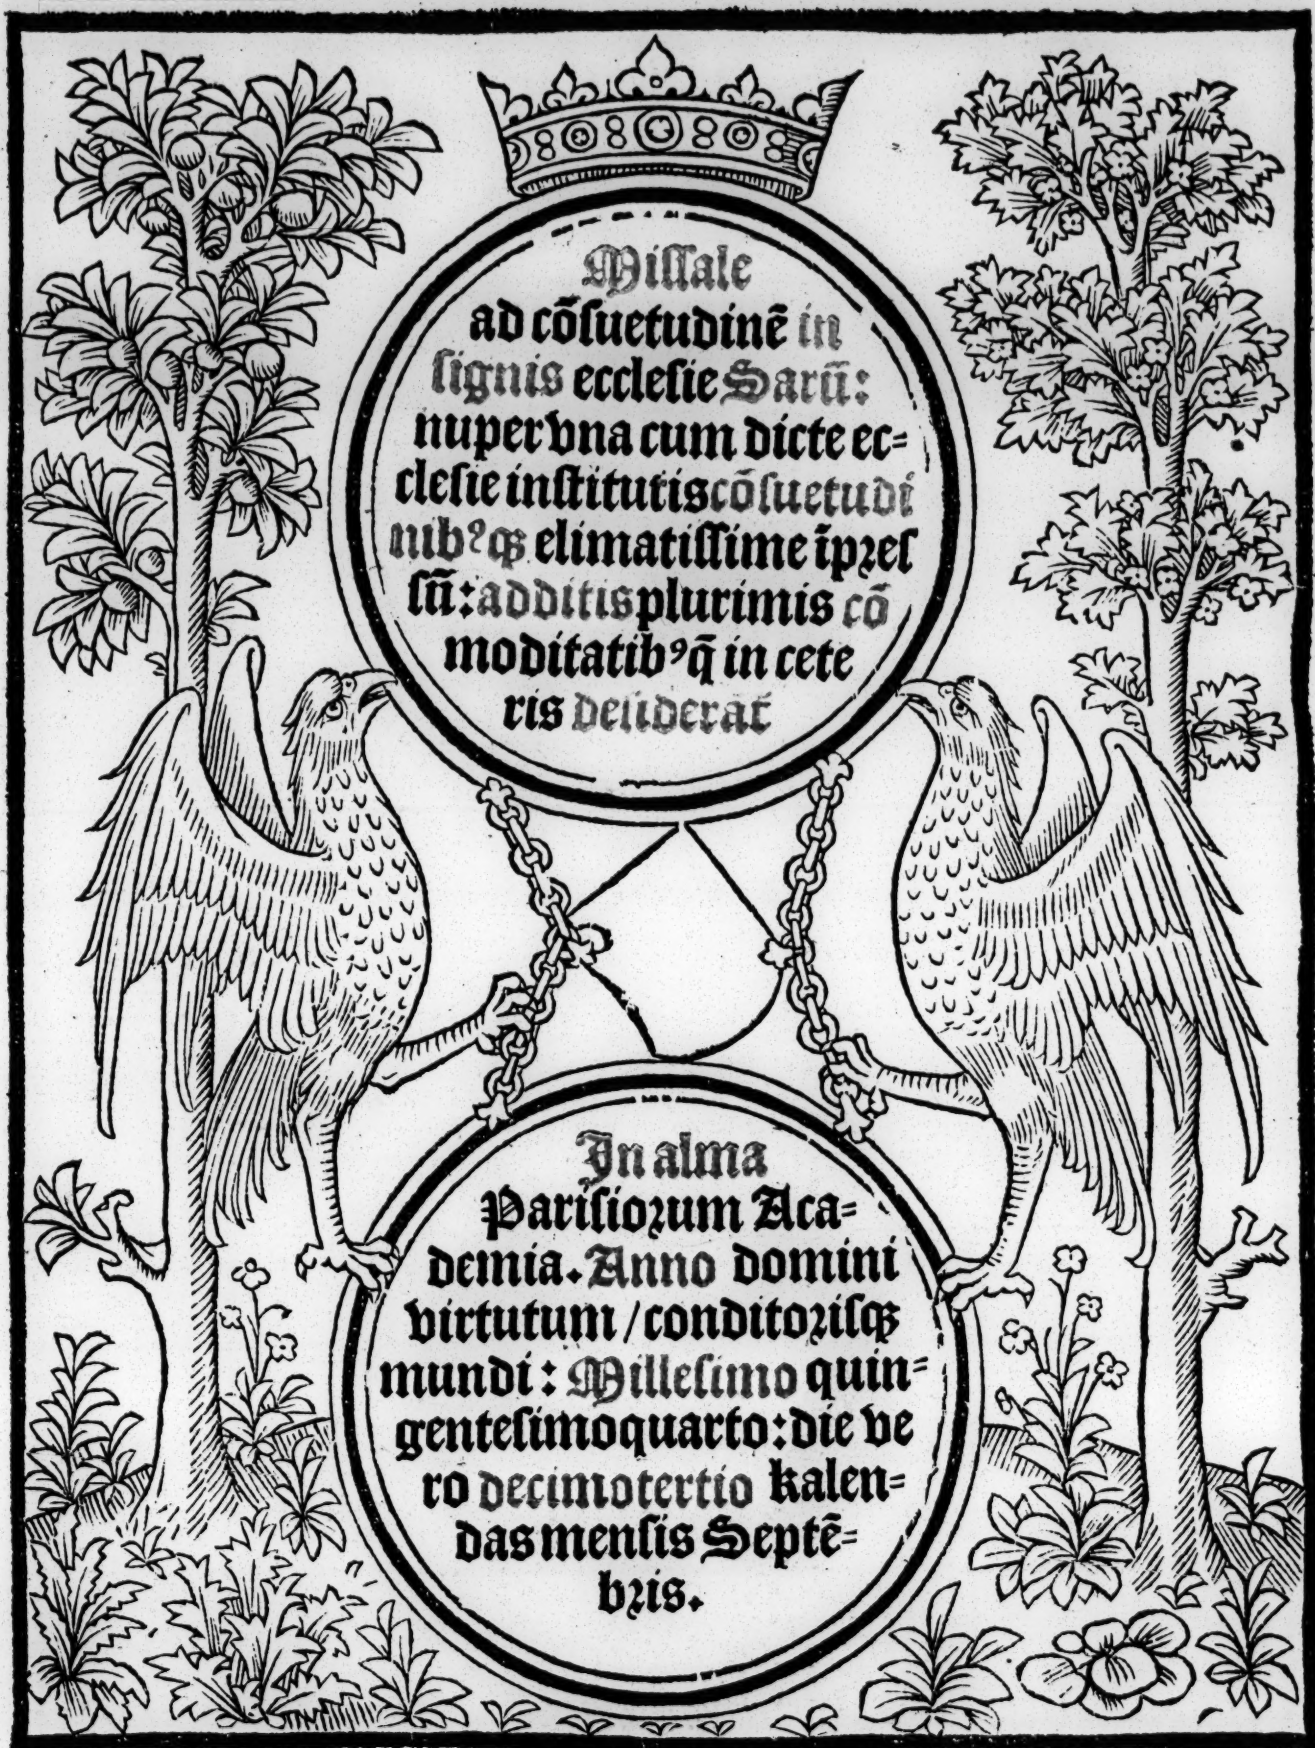 Missale
ad cõsuetudinẽ in
signis ecclesie Sarũ:
nuper vna cum dicte ec=
clesie institutis cõsuetudi
nibꝰqꝫ elimatissime ĩpꝛes
sũ: additis plurimis cõ
moditatibꝰ q̃ in cete
ris desiderãt
In alma
Parisioꝛum Aca=
demia. Anno domini
virtutum / conditoꝛisqꝫ
mundi: Millesimo quin=
gentesimoquarto: die ve
ro decimotertio kalen=
das mensis Septẽ=
bꝛis.